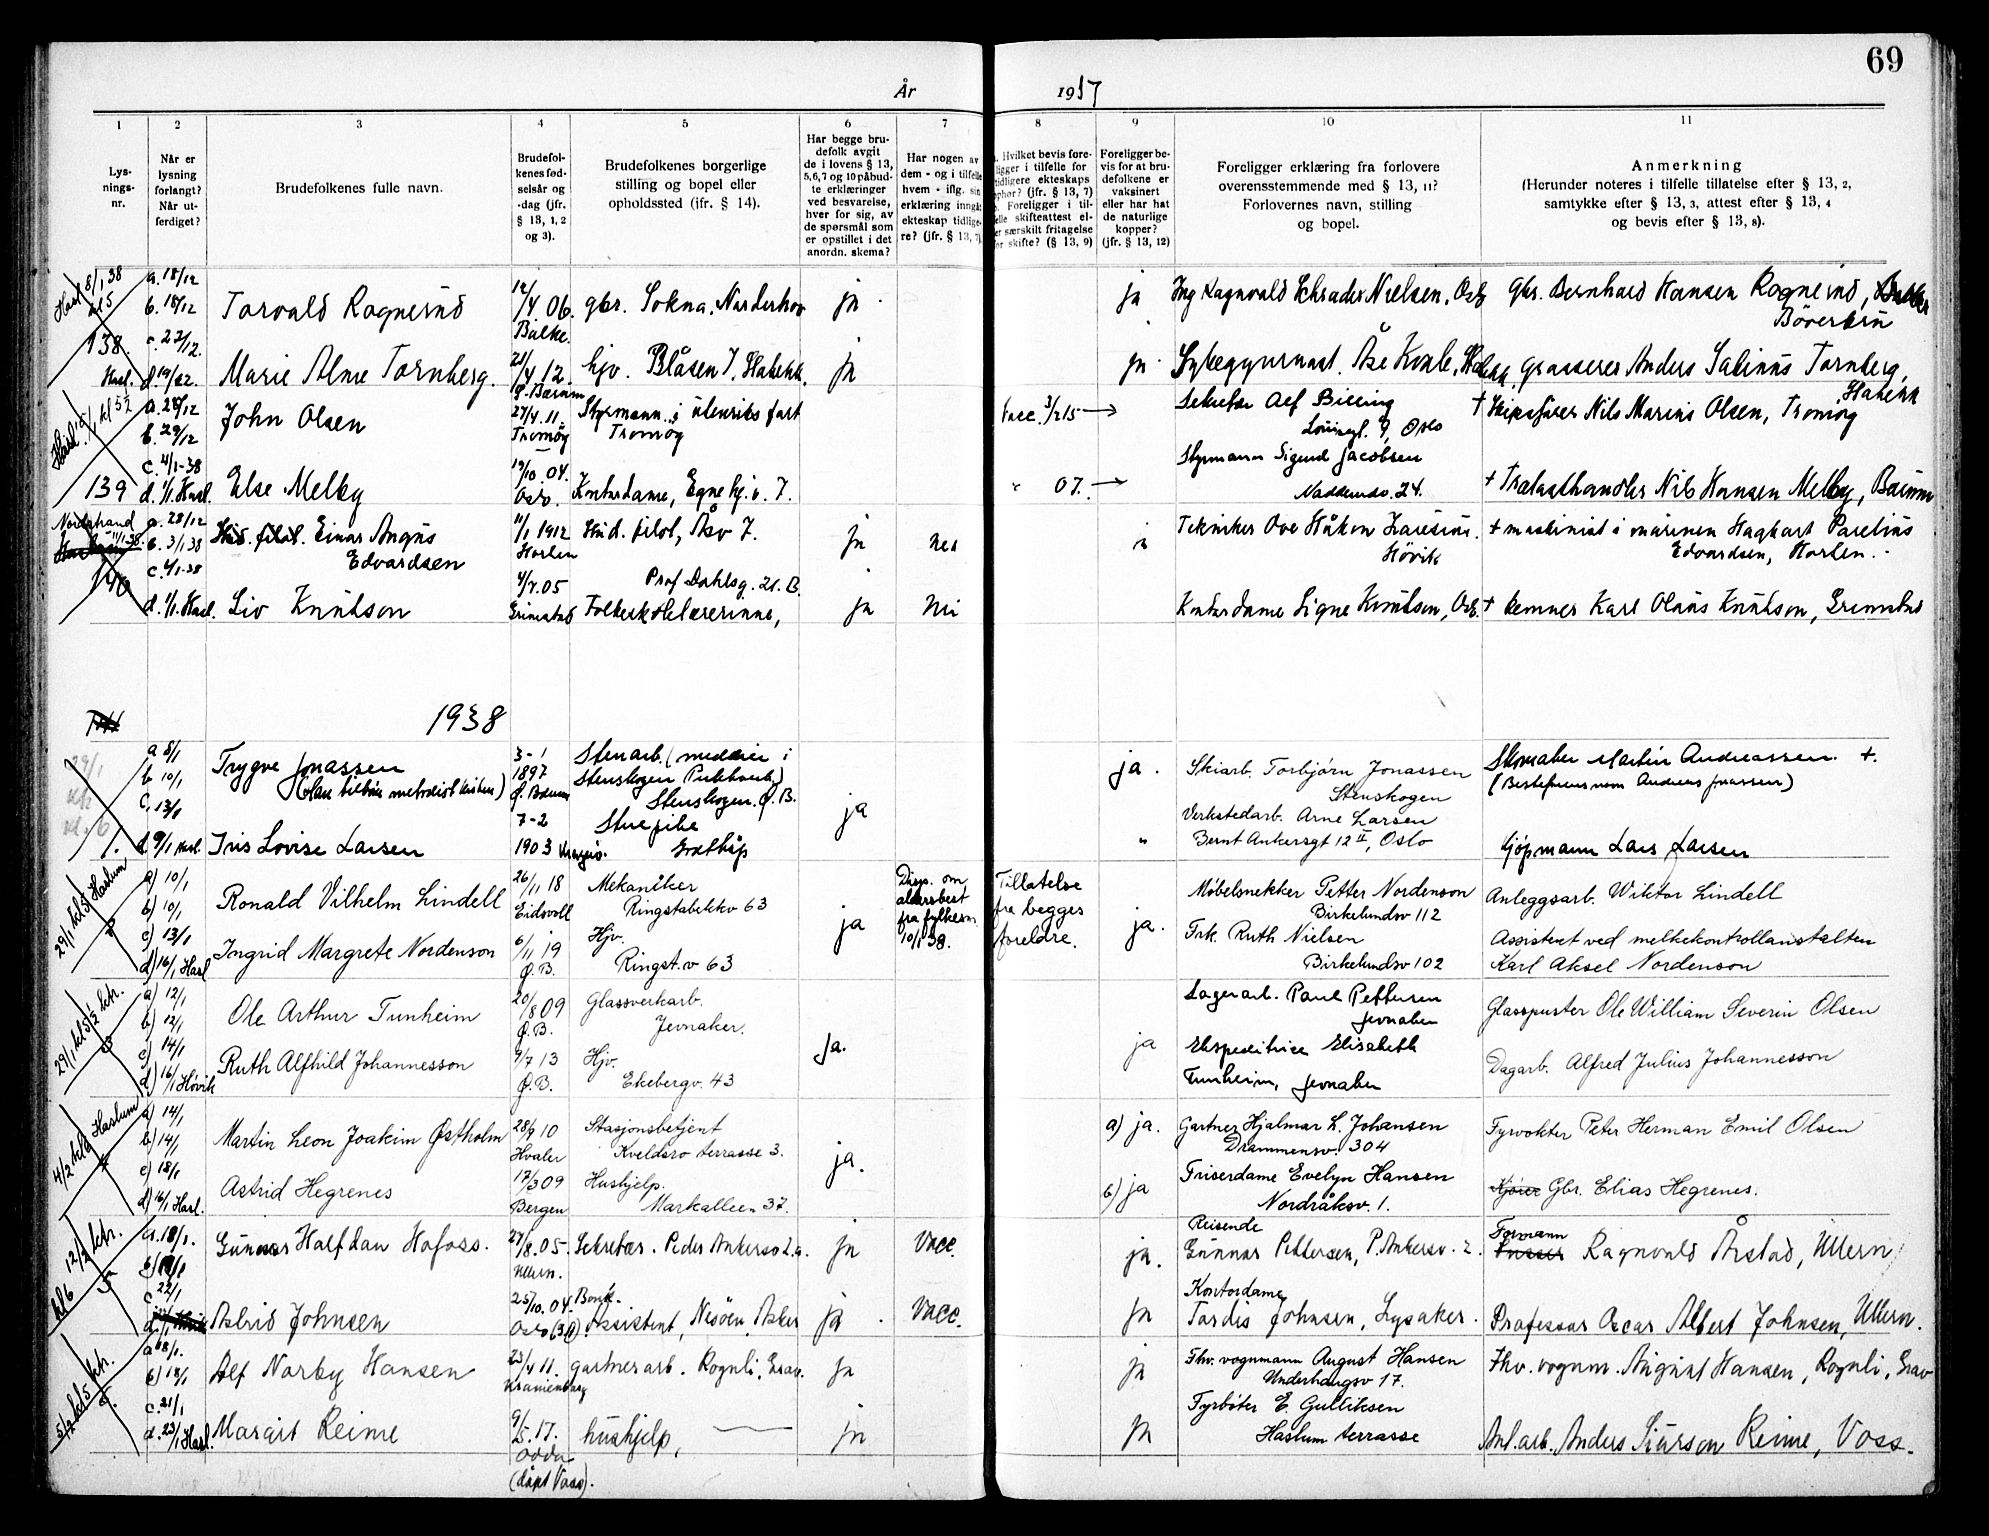 69
År
1937
1
2
3
4
5
6
7
8
9
10
11
Lys-
nings-
nr.
Når er
lysning
forlangt?
Når ut-
ferdiget?
Brudefolkenes fulle navn.
Brudefol-
kenes fød-
selsår og
-dag (jfr.
§ 13, 1, 2
og 3).
Brudefolkenes borgerlige
stilling og bopel eller
opholdssted (ifr. § 14).
Har begge bru-
defolk avgit
de i lovens § 13,
5,6,7 og 10 påbud-
te erklæringer
ved besvarelse,
hver for sig, av
de spørsmål som
er opstillet i det
anordn. skema?
Har nogen av
dem - og i tilfelle
hvem - iflg. sin
erklæring inngåt
ekteskap tidlige-
re? (jfr. § 13, 7)
Hvilket bevis fore-
ligger i tilfelle for
tidligere ekteskaps
ophør? (jfr. § 13, 7)
Foreligger i til-
felle skifteattest el-
ler særskilt fritagelse
for skifte? (§ 13, 9)
Foreligger be-
vis for at bru-
defolkene er
vaksinert
eller har hat
de naturlige
kopper?
(jfr. § 13, 12)
Foreligger erklæring fra forlovere
overensstemmende med § 13, 11?
Forlovernes navn, stilling
og bopel.
Anmerkning
(Herunder noteres i tilfelle tillatelse efter § 13, 2,
samtykke efter § 13, 3, attest efter § 13, 4
og bevis efter § 13, 8).
8/1 38
138.
a. 18/12
b. 18/12
c. 22/12.
Torvald Rognerud
12/4 06.
gbr. Sokna, Norderhov
ja
ja
Ing Ragnvald Schrader Nielsen, Oslo
Gbr. Bernhard Hansen Rognerud,
Marie Alme Tornberg.
21/4 12.
hjv. Blåsen 7, Stabekk.
ja
ja
Sykegymnast. Åse Kvale, Stabekk.
Grosserer Anders Salinus Tornberg,
Stabekk
139
a. 28/12
b. 29/12
c. 4/1-38
d. 1/1. Hasl.
John Olsen
27/4. 11.
Tromøy
Styrmann i utenriks fart
Tromøy
Vacc. 3/2 15 →
Sekretær Alf Billing
Louisesgt. 9, Oslo
+ Skipsfører Nils Marius Olsen, Tromøy
Else Melby
19/10. 04.
Oslo.
Kontordame, Egne hj. v. 7.
" 07. →
Styrmann Sigurd Jacobsen
Nadderudv. 24.
+ Trelasthandler Nils Hansen Melby, Bærum
Nordstrand
11/1-38.
140
a. 28/12
b. 3/1 38
c. 4/1-38
d. 1/1. Hasl.
Einar Angus
Edvardsen
11/1 1912
Horten
Stud. filol, Åsv 7.
ja
nei
Tekniker Ove Håkon
Høvik
+ maskinist i marinen Haghart Parelius
Edvardsen, Horten.
Liv Knutson
4/7. 05
Grimstad
Prof Dahlsg. 21. B.
Folkeskolelærerinne,
ja
nei
Kontordame Signe Knutson, Oslo.
+ kemner Karl Olaus Knutson, Grimstad
1938
29/1
kl. 6
1.
a 8/1
b 10/1
c. 13/1
d. 9/1 Hasl.
Trygve Jonassen
(Han tilhør metodistkirken)
3-1
1897
Ø. Bærum
Stenarb. (medeier i
Stenskogen Pukkverk)
Stenskogen. Ø. B.
ja
ja.
Skiarb. Torbjørn Jonassen
Stenskogen
Skomaker Martin Andreassen. +.
(Bestefarens navn Andreas Jonassen)
Iris Lovise Larsen
7-2
1903 Kragerø.
Stuepike
Godthåp
"
Verkstedarb. Arne Larsen
Bernt Ankersgt 12 II, Oslo
Kjøpmann Lars Larsen
29/1 kl 5 Haslum
2
a) 10/1
b) 10/1
c) 13/1
d) 16/1 Hasl
Ronald Vilhelm Lindell
26/11 18
Eidsvoll
Mekaniker
Ringstabekkv 63
ja
Disp. om
aldersbest
fra fylkesm
10/1 38.
Tillatelse
fra begges
foreldre.
ja.
Møbelsnekker Petter Nordenson
Birkelundsv 112
Anleggsarb. Wiktor Lindell
Ingrid Margrete Nordenson
6/11 19
Ø. B.
Hjv.
Ringst. v 63
Frk. Ruth Nielsen
Birkelundsv 102
Assistent ved melkekontrollanstalten
Karl Aksel Nordenson
29/1 kl 5 1/2 kch.
3
a) 12/1
b) 12/1
c) 14/1
d) 16/1 Høvik
Ole Arthur Tunheim
20/8 09
Ø. B.
Glassverkarb.
Jevnaker.
Ja.
ja
Lagerarb. Paul Pettersen
Jevnaker
Glasspuster Ole William Severin Olsen
Ruth Alfhild Johannesson
9/7 13
Ø. B.
Hjv.
Ekebergv. 43
Ekspeditrice Elisabeth
Tunheim, Jevnaker
Dagarb. Alfred Julius Johannesson
4/2 kl 9 Haslum
4
a) 14/1
b) 14/1
c) 18/1
d) 16/1 Hasl.
Martin Leon Joakim Østholm
28/9 10
Hvaler
Stasjonsbetjent
Kveldsro terrasse 3.
ja.
a) ja.
Gartner Hjalmar L. Johansen
Drammensv. 304
Fyrvokter Peter Herman Emil Olsen
Astrid Hegrenes
17/3 09
Bergen
Hushjelp.
Markalleen 37.
b) ja
Friserdame Evelyn Hansen
Nordråksv. 1.
Gbr. Elias Hegrenes.
kl 6 12/2 kch.
5
a. 18/1.
b) 19/1
c 22/1
Gunnar Halfdan Hofoss.
27/8. 05.
Ullern.
Sekretær. Peder Ankersv 2.a.
ja
Vacc.
ja.
Reisende
Gunnar Pettersen, P. Ankersv. 2.
Formann
Ragnvald Årstad, Ullern
Astrid Johnsen
25/10. 04.
Bank-
assistent, Nesøen, Asker
ja
Vacc.
ja
Kontordame
Tordis Johnsen, Lysaker.
Professor Oscar Albert Johnsen, Ullern.
5/2 kl 5 kch.
6.
a 18/1.
b) 18/1
c. 21/1
d. 23/1 Hasl.
Alf Norby Hansen
23/4 11.
gartnerarb. Rognli, Grav.
ja
ja
Fhv. vognmann August Hansen
Underhaugsv 17.
Fhv. vognm. August Hansen, Rognli, Grav
Margit Reime
9/5. 17.
Odda
(døpt Voss).
hushjelp,
ja
ja
Fyrbøter E. Gulliksen
Haslum terrasse
Anl. arb. Anders Sjurson Reime, Voss.